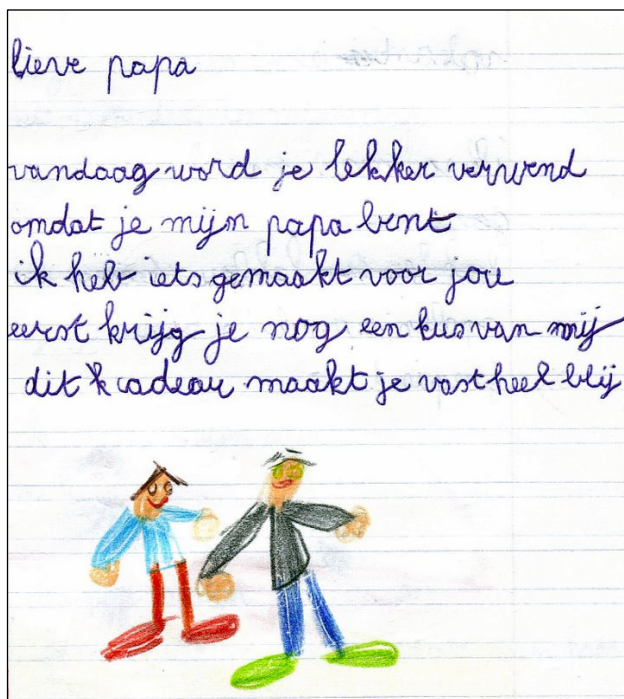 lieve papa
vandaag word je lekker verwend
omdat je mijn papa bent
ik heb iets gemaakt voor jou
eerst krijg je nog een kus van mij
dit kadeau maakt je vast heel blij